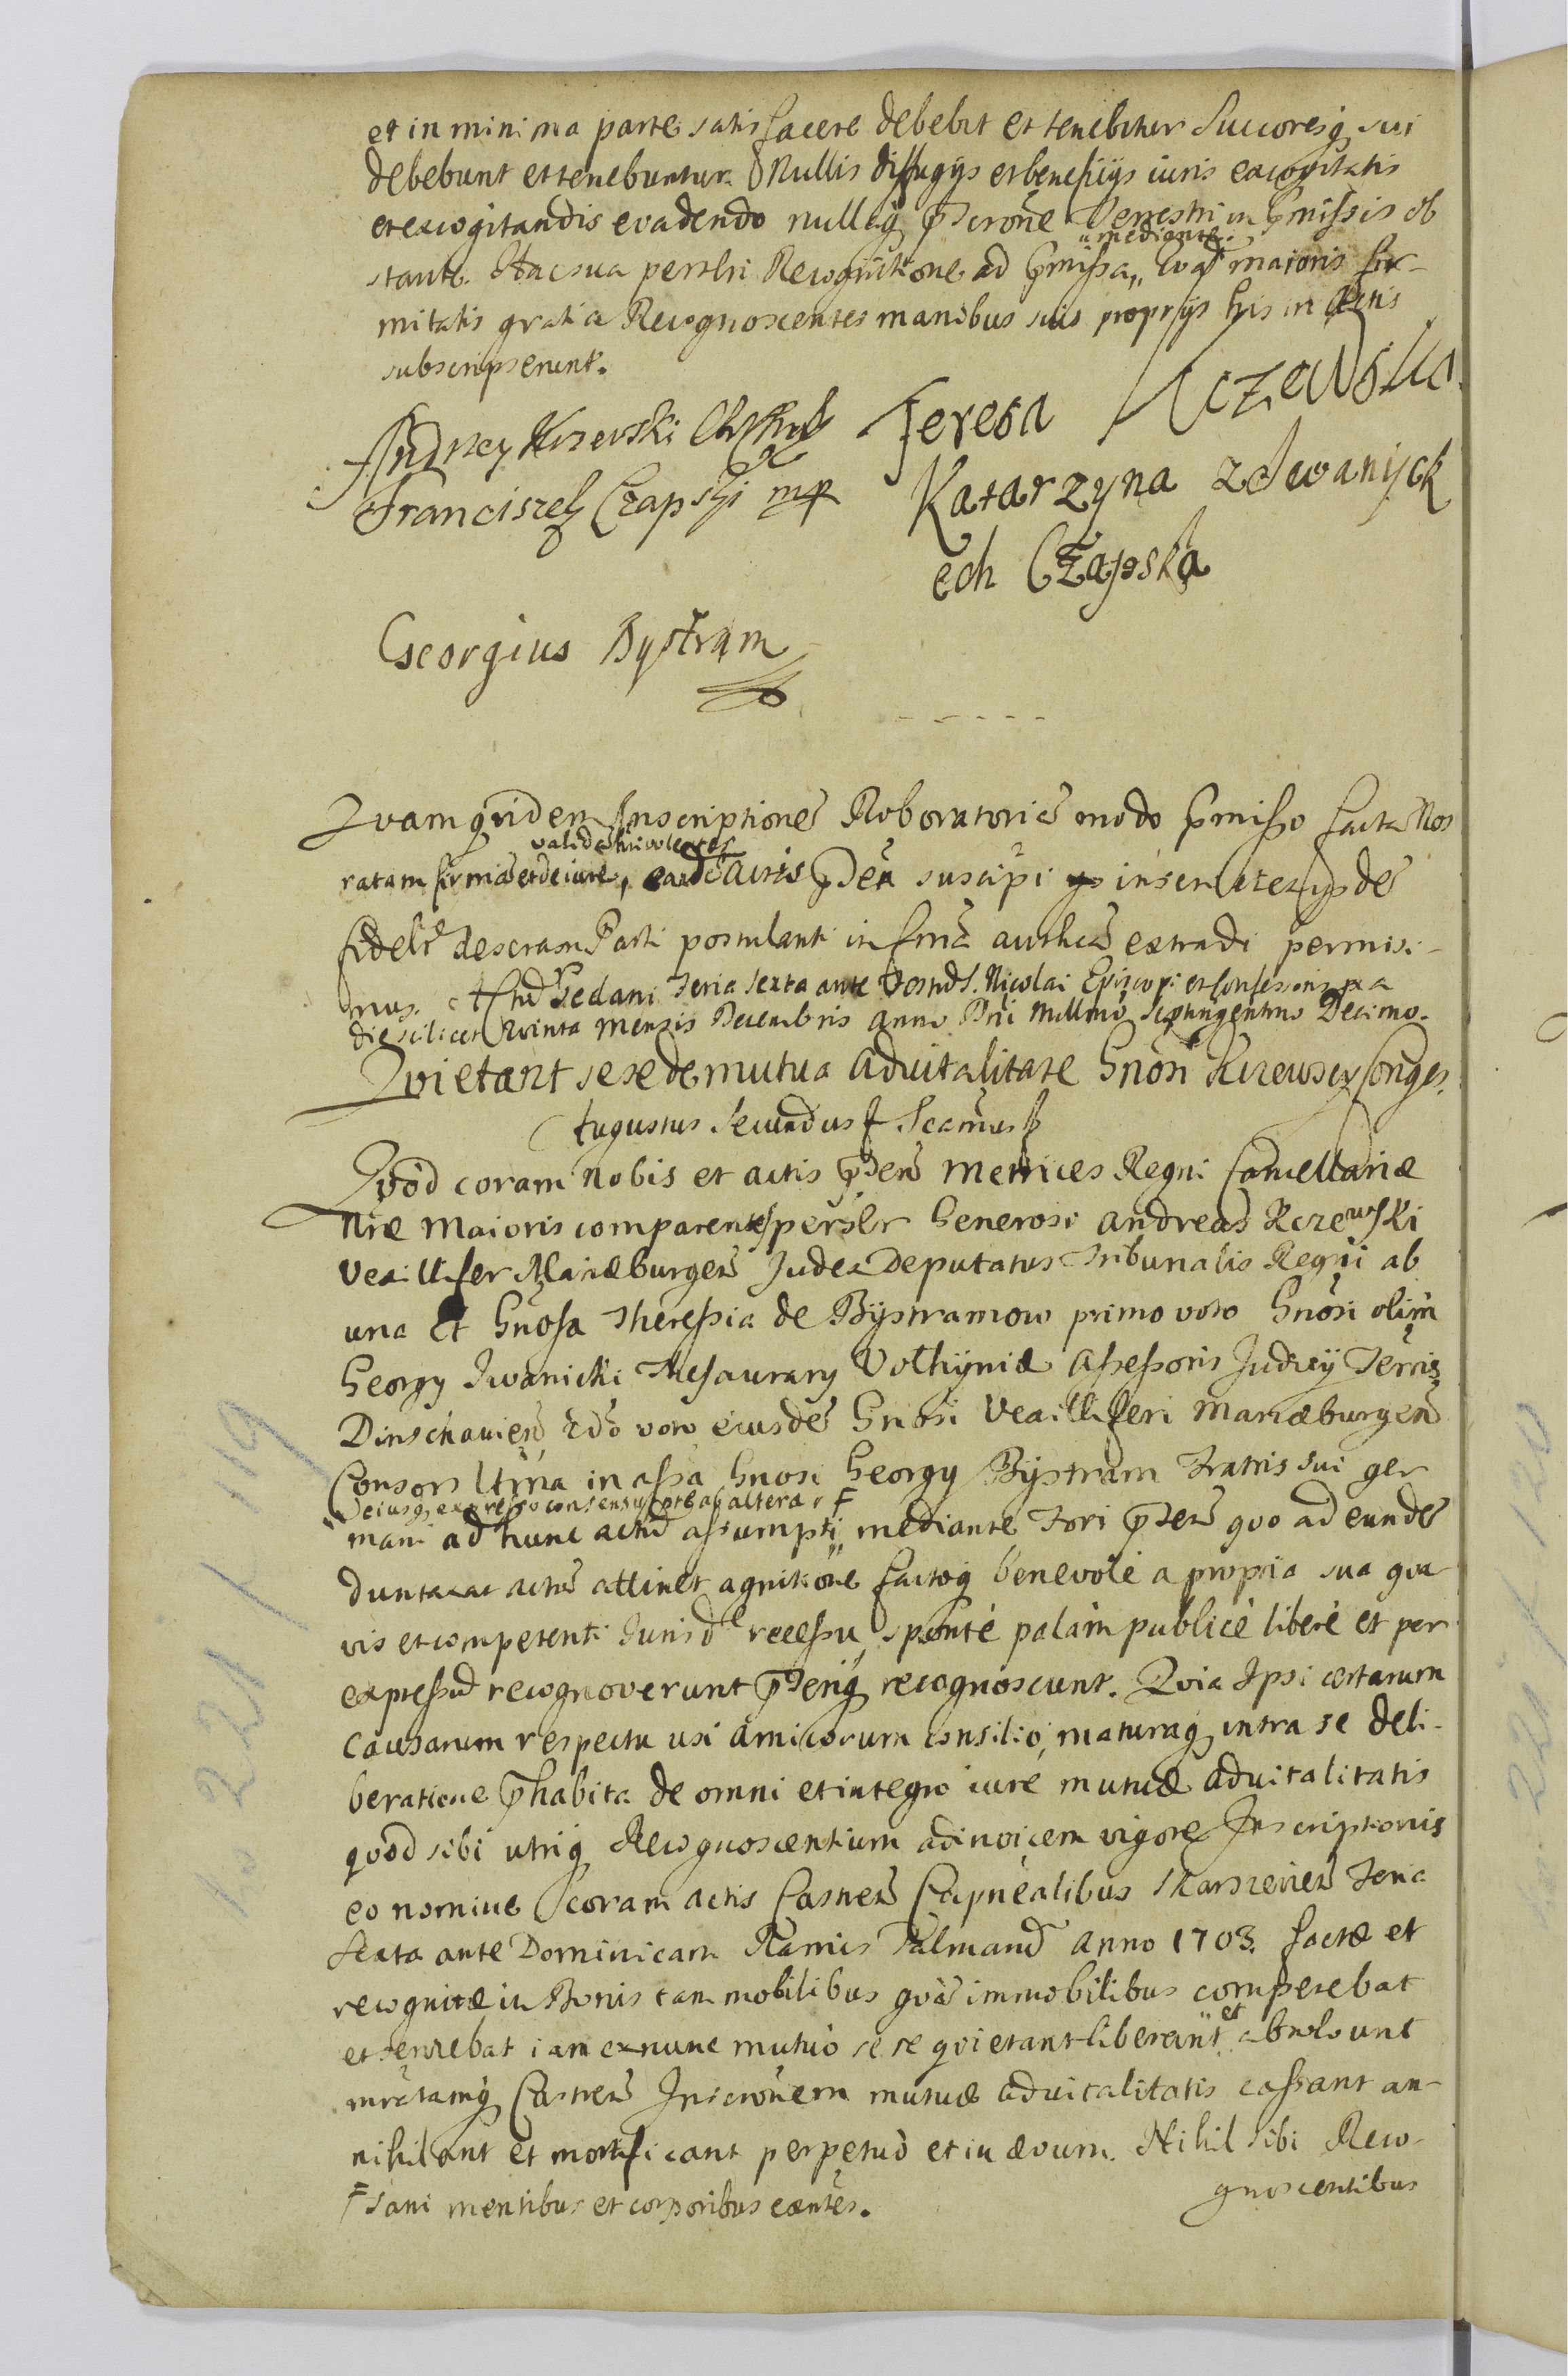 et in minima parte satisfacere debebit et tenebitur Succoresq sui
debebunt et tenebuntur. Nullis diffugijs et beneficijs iuris excogitatis
et excogitandis evadendo nullaq Terrestri in pmissis ob
stante. Hac sua persli Recognitione ad pmissa „ maioris fir-
„mediante.
mitatis gratia Recognoscentes manibus suis proprijs his in Actis
subscripserunt.
Andrzey Krzewski
Teresa Krzewska
Franciszek Czapski mp
Katarzyna z Iwanijck
ech Czapska
Georgius Bystram
Quam quidem Inscriptionē Roboratoriē modo pmisso factā Nos
ratam firmā et de iure, eandē actis pntibus suscipi inseri
fidelr descriptam Parti postulanti in formā authēn extradi permisi-
mus. Actū Gedani Feria Sexta ante Festū S. Nicolai Episcopi et Confessoris pxa
die scilicet Quinta Mensis Decembris Anno Dni Millmō Septingentmo Decimo.
Quietant sese de mutua advitalitate Gnōsi Krzewscy Conges.
Augustus Secundus
Quod coram Nobis et actis pntibus Metrices Regni Cancellariæ
Nræ Maioris comparentes persōlr Generosi Andreas Krzewski
Vexillifer Mariæburgen Judex Deputatus Tribunalis Regni ab
una et Gnosa Theressia de Bystramow primo voto Gnōsi olim
Georgy Iwanicki Thesaurary Volhyniæ Assessoris Judicij Terris
Dirschauien 2dō voto eiusdē Gnōsi Vexilliferi Mariæburgen
Consors Ltma in assā Gnosi Georgy Bystram Fratris sui ger
„eiusq expresso consensu pte ab altera F
mani ad hunc actū assumpti „ mediante Fori quo ad eundē
duntaxat actū attinet agnitione factaq benevolē a propria sua qua
vis et competenti Jurisde recessu sponte palam publicè liberè et per
expressū recognoverunt recognoscunt. Quia Ipsi certarum
causarum respectu usi amicorum consilio, maturaq intra se deli-
beratione phabita de omni et integro iure mutuæ advitalitatis
quod sibi utriq Recognoscentium adinvicem vigore Inscriptionis
eo nomine coram actis Castren Capnealibus Skarszevien Feria
Sexta ante Dominicam Ramis Palmarū Anno 1703. factæ et
recognitæ in Bonis tam mobilibus quā immobilibus competebat
et servebat iam ex nunc mutuò se se quietant liberant et absolvunt
Castren Inscrōnem mutuæ advitalitatis cassant an-
nihilant et mortificant perpetuò et in ævum. Nihil sibi Reco-
gnoscentibus
F sani mentibus et corporibus exntes.